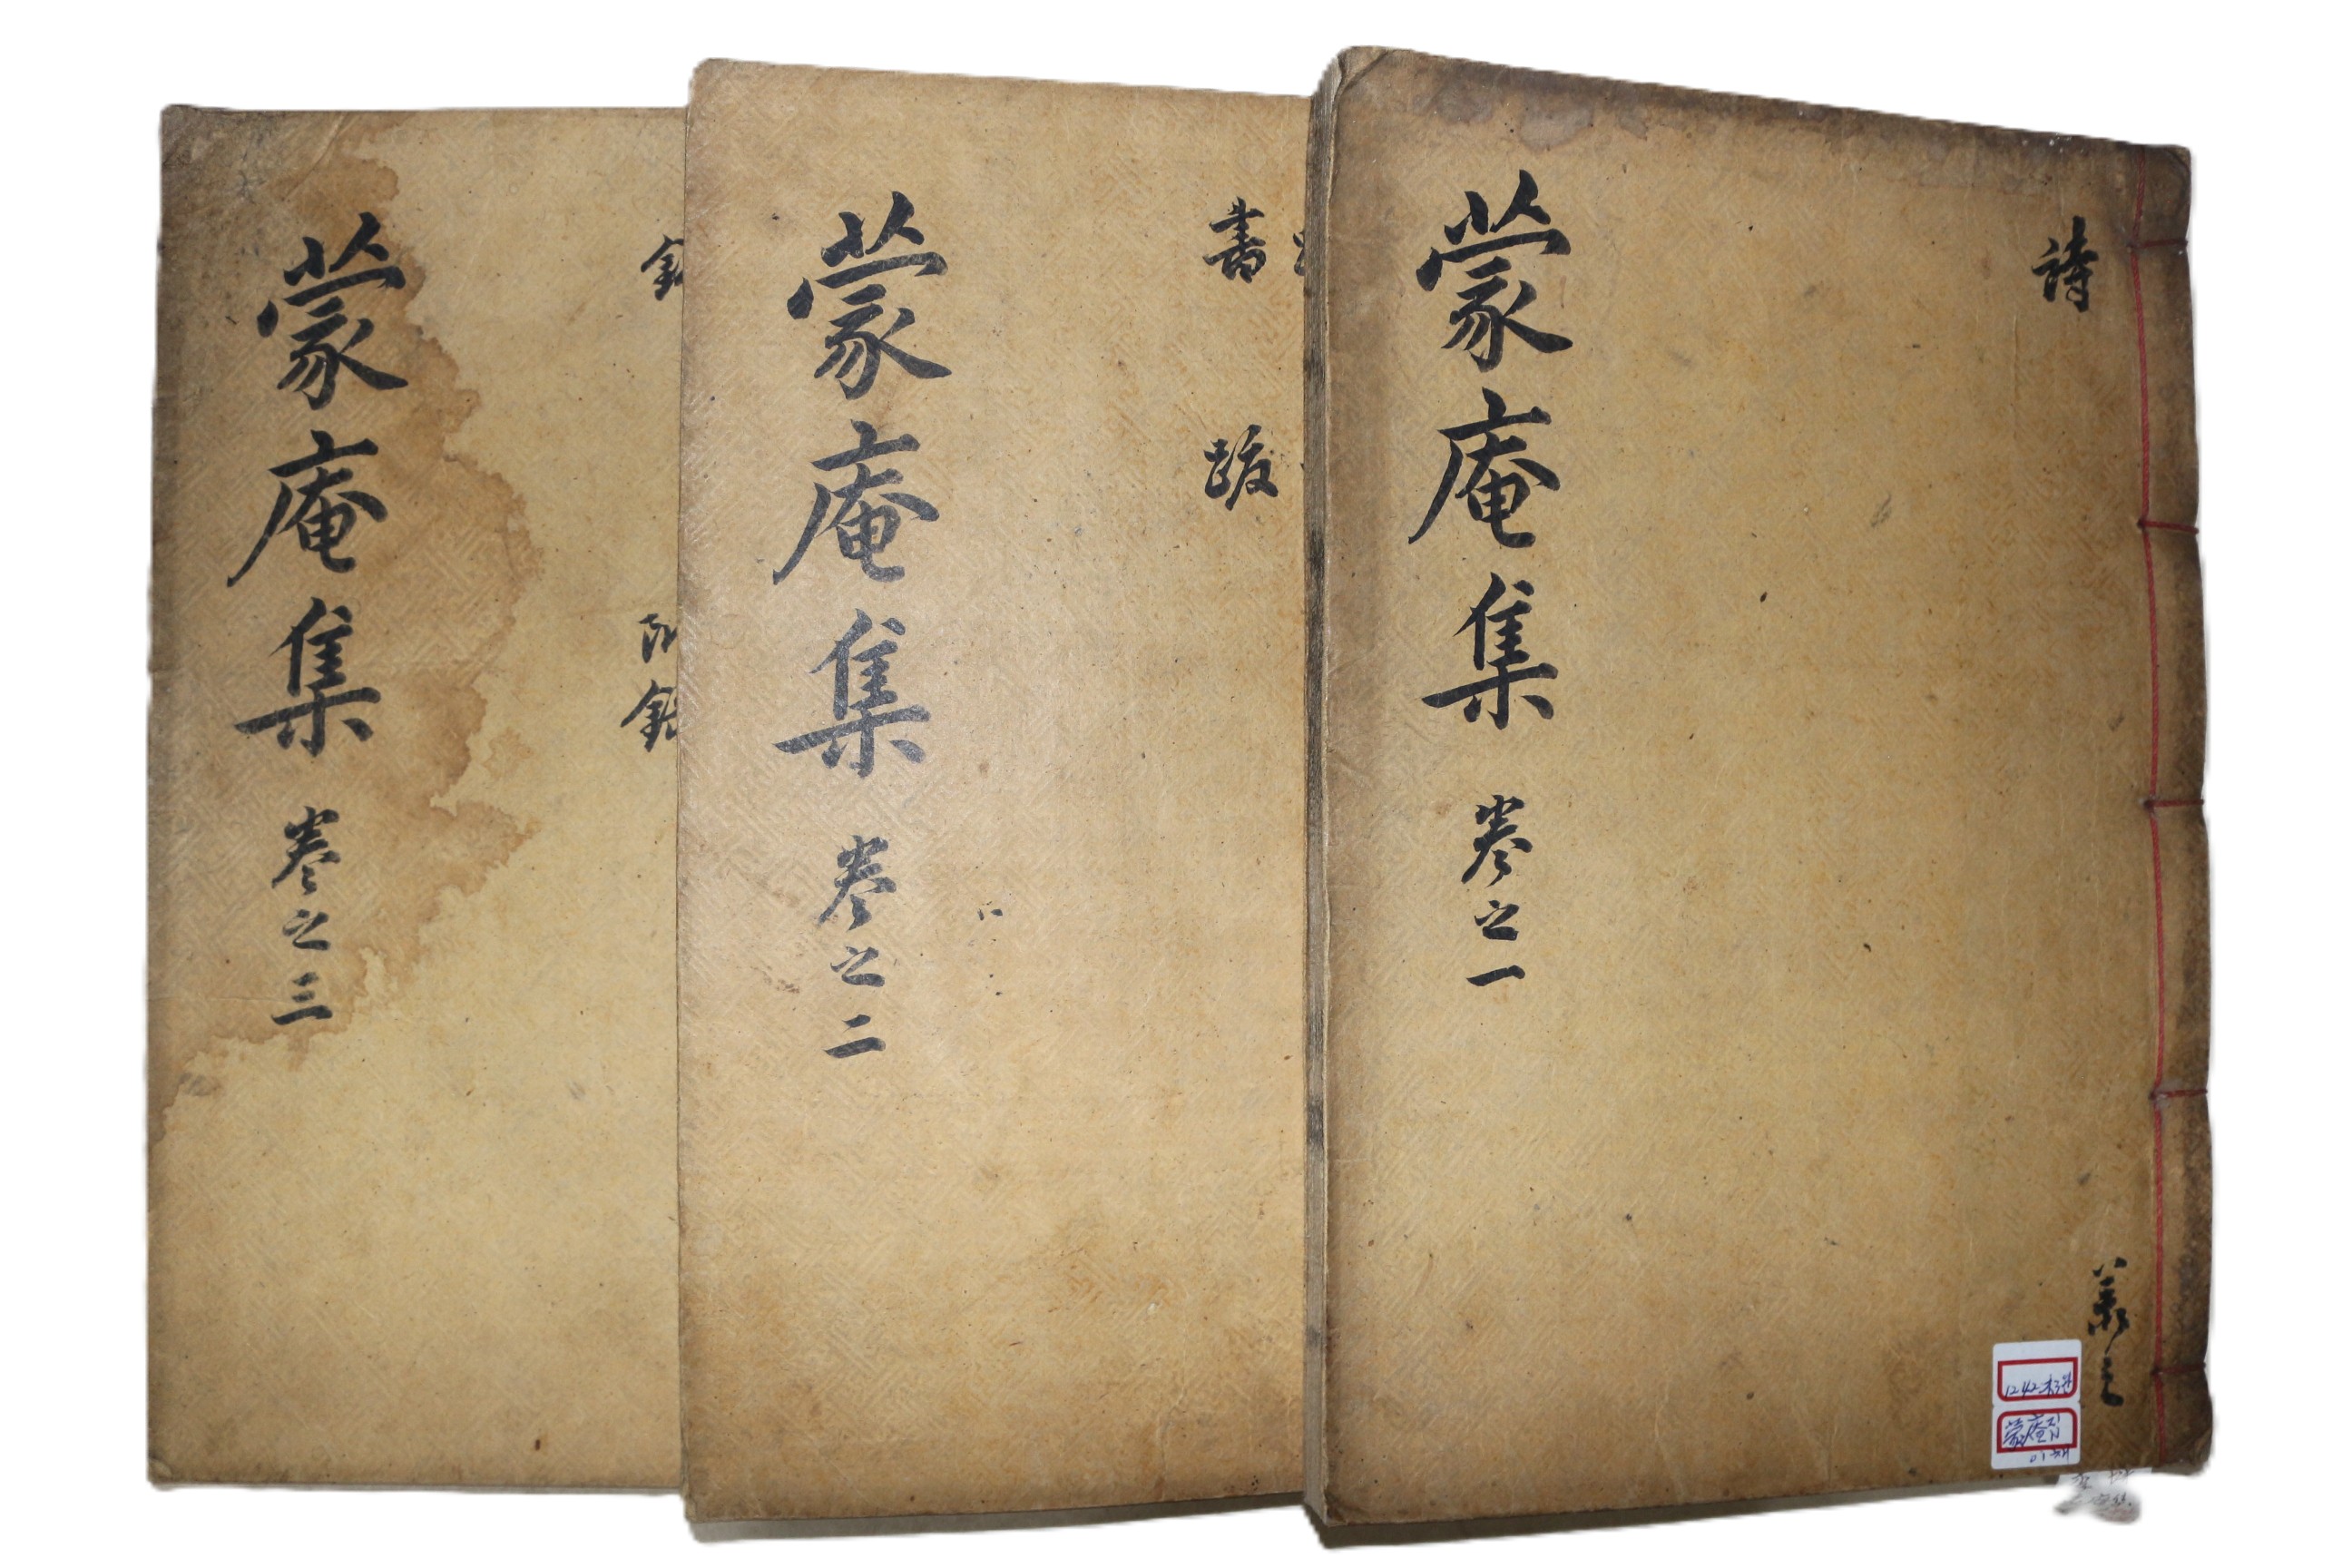 詩
蒙庵集 卷之一
書
跋
蒙庵集 卷之二
錄
附錄
蒙庵集 卷之三